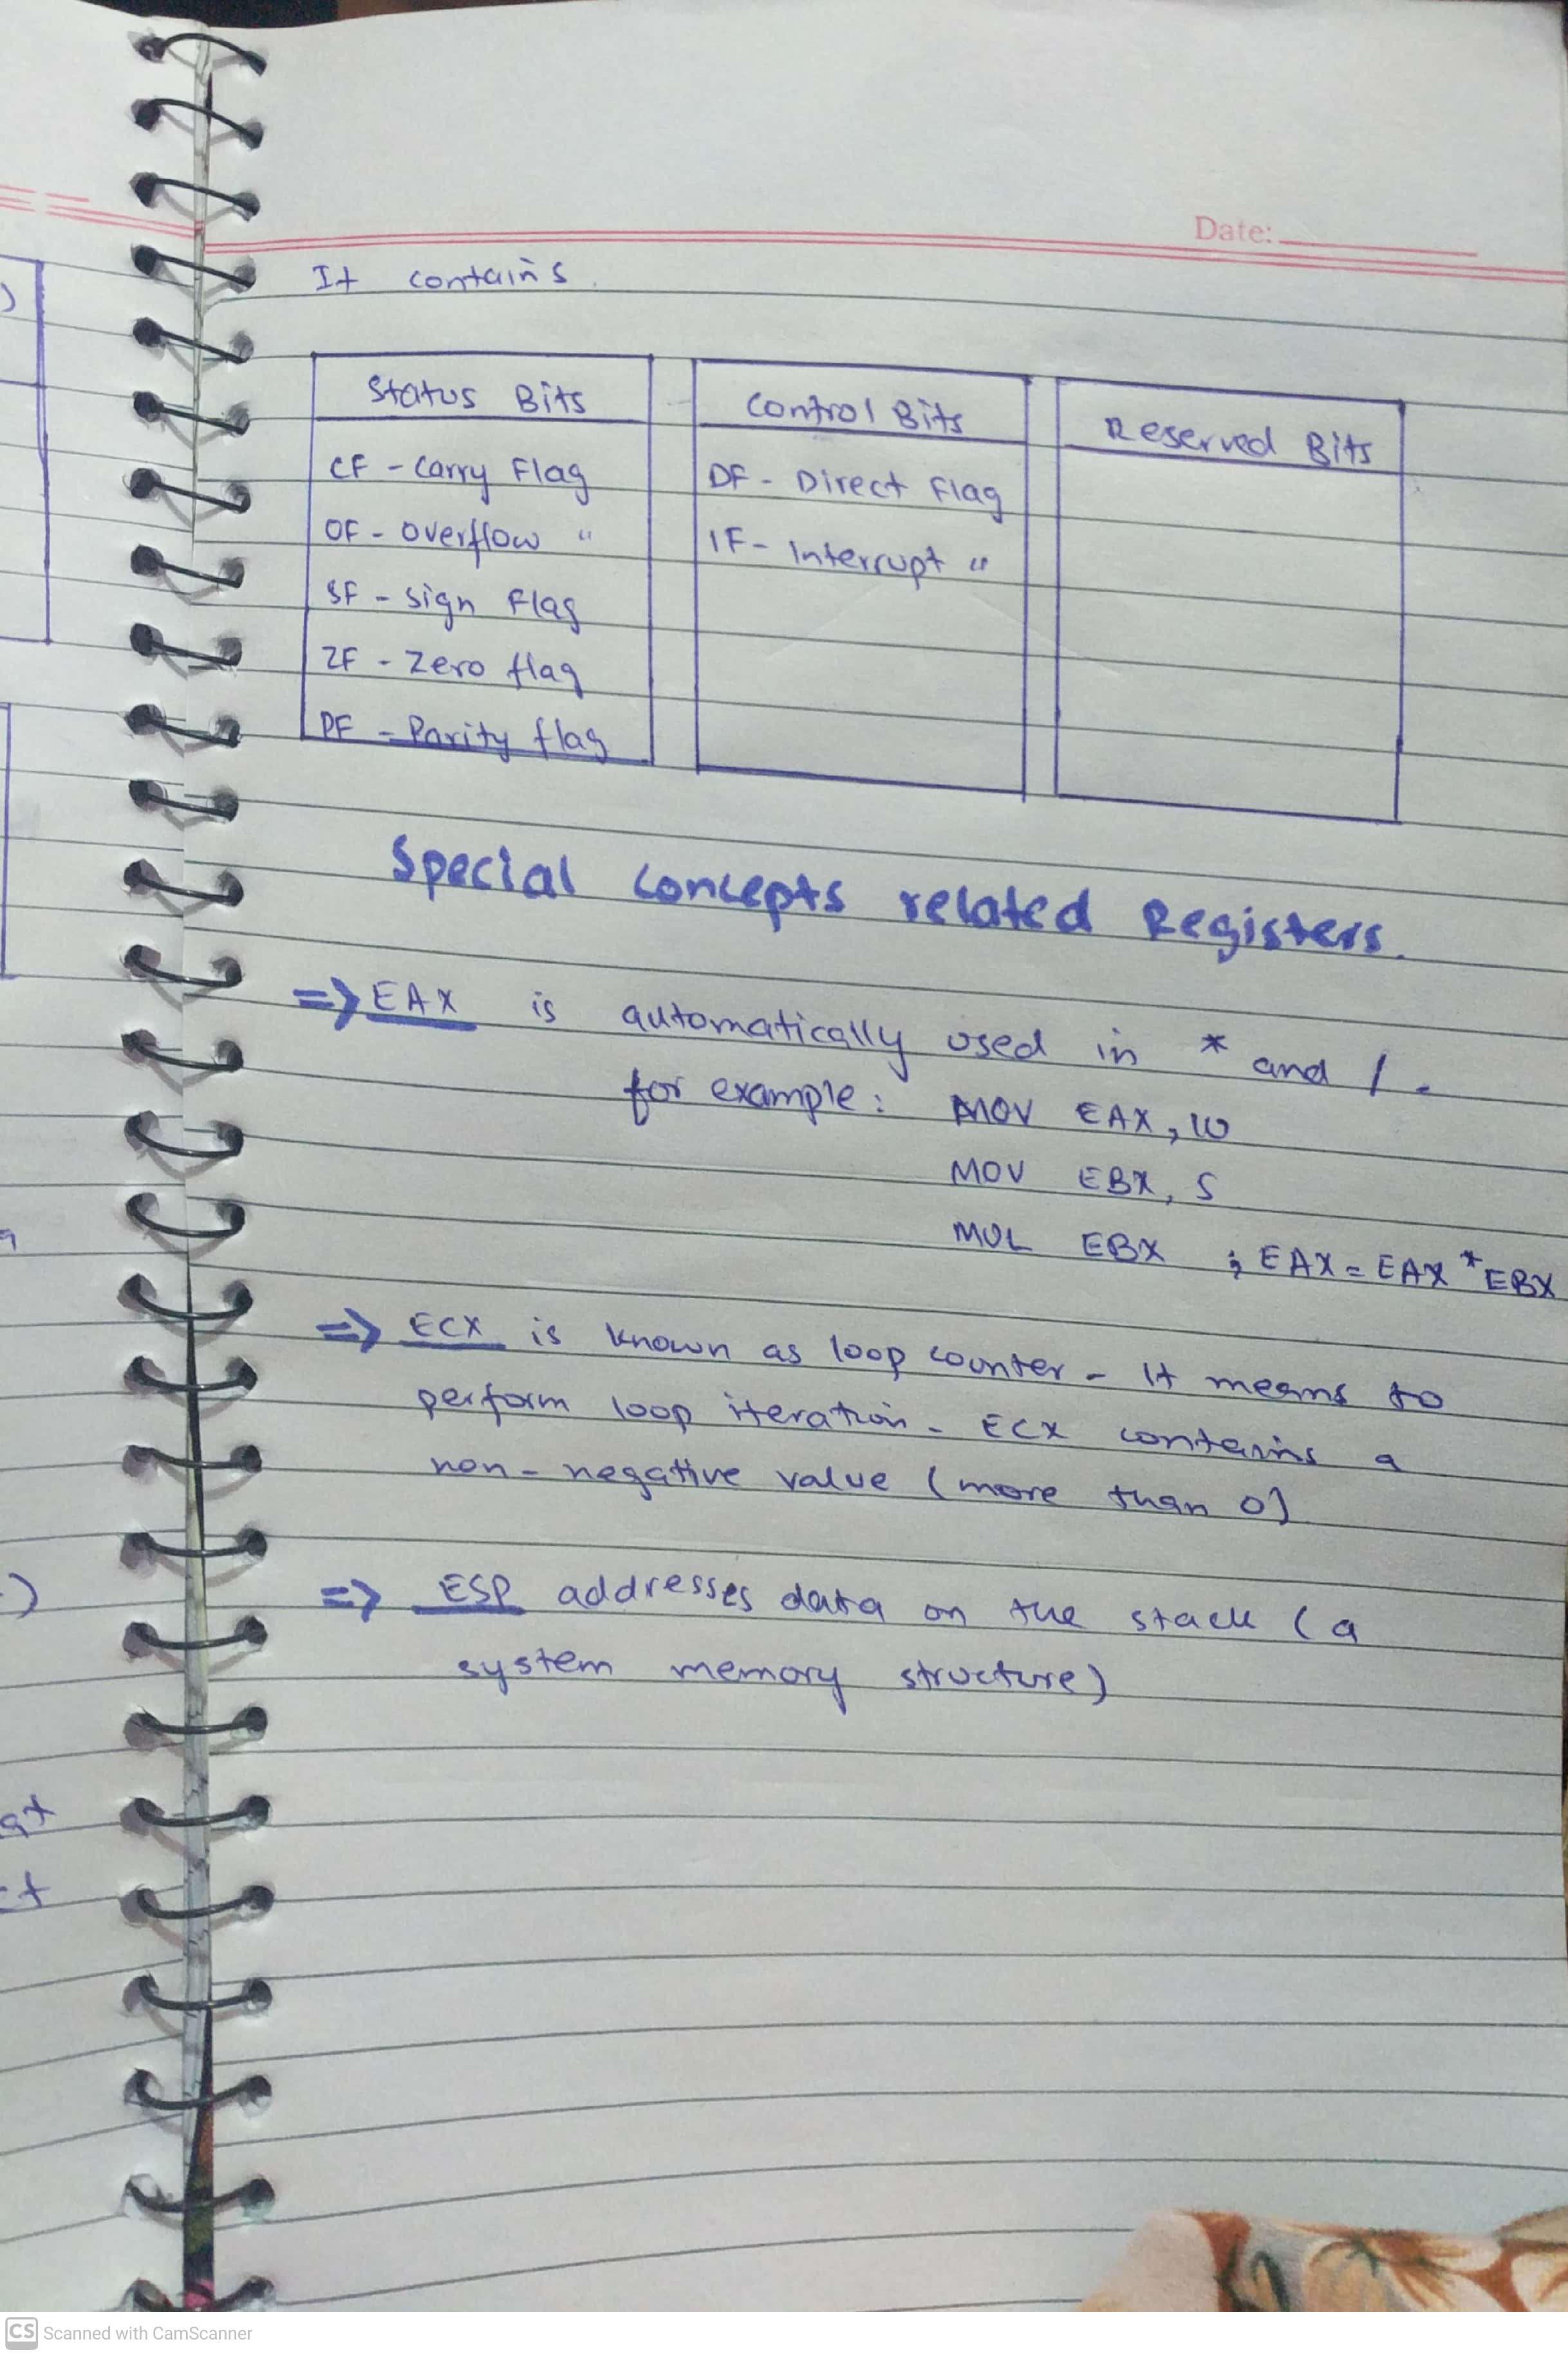 Date:
It contains
Status Bits
CF - Carry Flag
OF - Overflow "
SF - Sign Flag
ZF - Zero flag
PF - Parity flag
Control Bits
DF - Direct Flag
IF - Interrupt "
Reserved Bits
Special Concepts related Registers.
=> EAX is automatically used in * and / .
for example: MOV EAX, 10
MOV EBX, 5
MUL EBX ; EAX = EAX * EBX
=> ECX is known as loop counter - It means to
perform loop iteration - ECX contains a
non-negative value (more than 0)
=> ESP addresses data on the stack (a
system memory structure)
CS Scanned with CamScanner